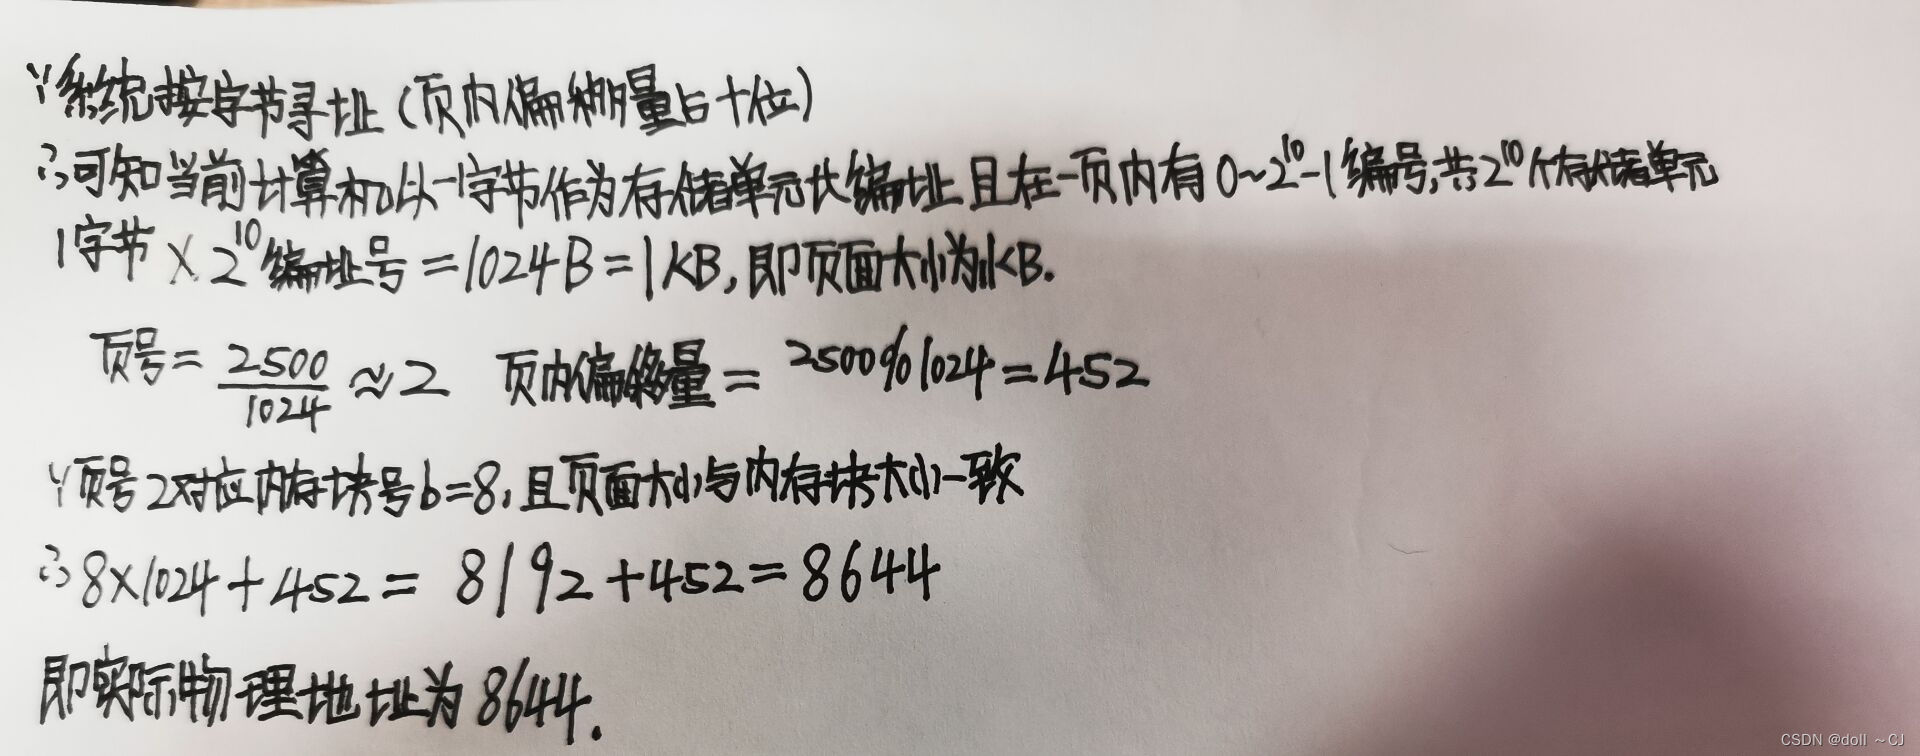 ∵系统按字节寻址(页内偏移量占十位)
∴可知当前计算机以1字节作为存储单元大编址且在一页内有0~2^10-1编号,共2^10个存储单元
1字节×2^10编址号=1024B=1KB,即页面大小为1KB.
页号=2500/1024≈2 页内偏移量=2500%1024=452
∵页号2对应内存块号b=8,且页面大小与内存块大小一致
∴8×1024+452=8192+452=8644
即实际物理地址为8644.
CSDN @doll ~CJ